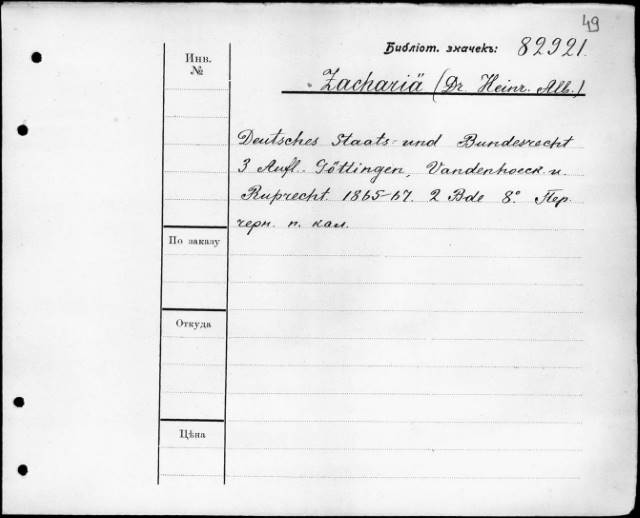 49
Библіот. значекъ: 82921.
Инв.
№
Zachariä (Dr. Heinr. Alb.)
Deutsches Staats- und Bundesrecht
3 Aufl. Göttingen, Vandenhoeck u.
Ruprecht. 1865-67. 2 Bde 8° Пер.
черн. п. кал.
По заказу
Откуда
Цѣна